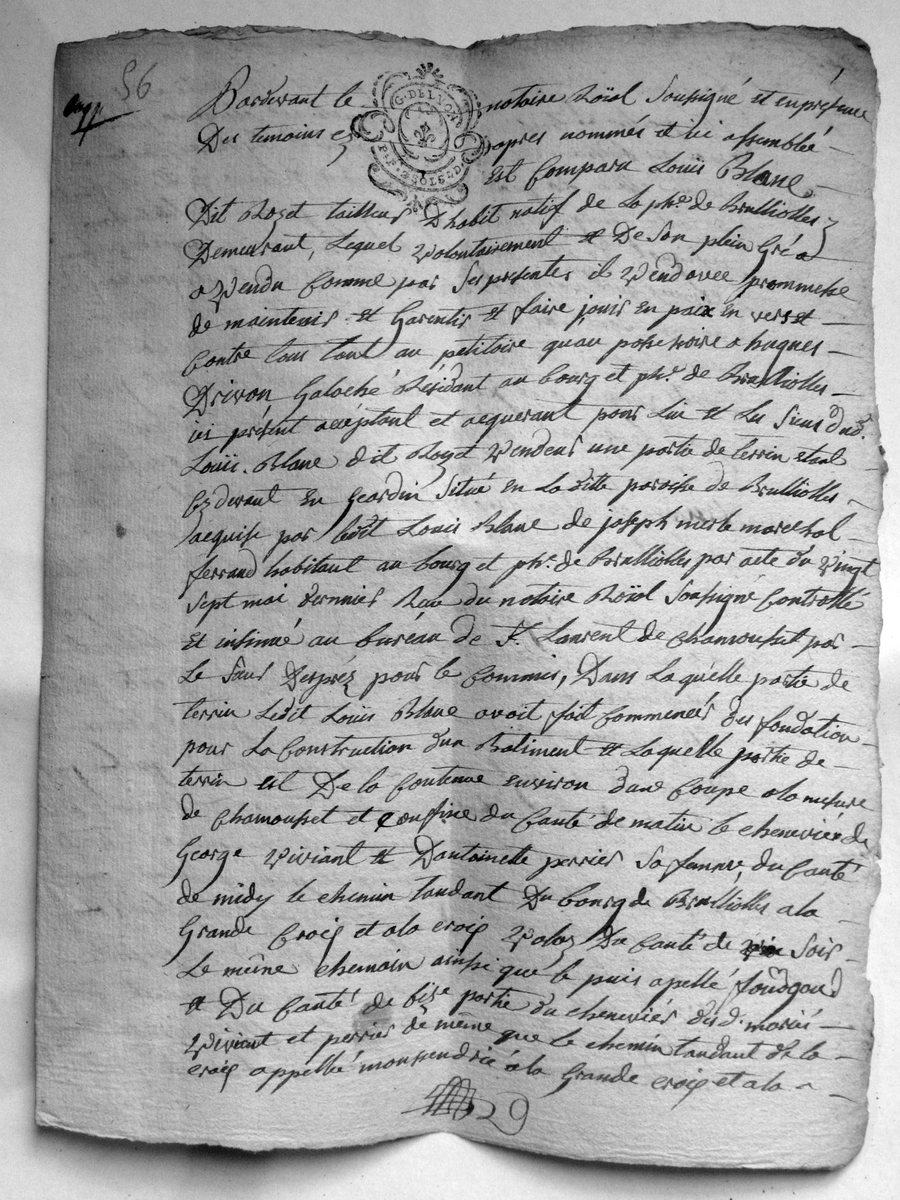 56
1
G. DE LYON
Pardevant le notaire Roïal Soussigné et en presence
Des temoins cy apres nommés et ici assemblés
Est Comparu Louïs Blanc
Dit Rozet tailleur D'habit natif de la phe. de Brulliolles y
Demeurant, Lequel volontairement et De Son plein Gré a
a vendu Comme par Ses presentes il vend avec prommesse
de maintenir et Garentir et faire jouir en paix en vers et
Contre tous tant au petitoire quau possessoire a hugues
Drivon Galoché Résidant au bourg et phe. de Brulliolles
ici présent accéptant et acquerant pour Lui et Les Siens dud.
Louïs Blanc dit Rozet vendeur une partie de terrin etant
Cydevant En Geardin Situé en La ditte paroisse de Brulliolles
acquise par ledit Louïs Blanc de joseph merle marechal
ferrand habitant au bourg et phe. de Brulliolles par acte du vingt
Sept mai dernnier Recu du notaire Roïal Soussigné Controllé
Et insinué au buréau de St. Laurent de chamousset par
Le Sieur Desprez pour le Commis, Dans Laquelle partie de
terrin Ledit Louïs Blanc avoit fait Commencer des fondation
pour La Construction d'un Batiment et Laquelle partie de
terrin est De la Contenue environ d'une Coupe a la mesure
de chamousset et Confine du Cauté de matin le chenevier de
George viviant et D'antoinette perrier Sa femme, du Cauté
de midy le chemin tandant Du bourg de Brulliolles a la
Grande Croix et a la croix Du Cauté de Soir
Le même chemain ainsi que le puis apellé
et Du Cauté de bize partie du chenevier dud. marié
viviant et perrier de même que le chemin tandant de la
croix appellée a la Grande croix et a la
29